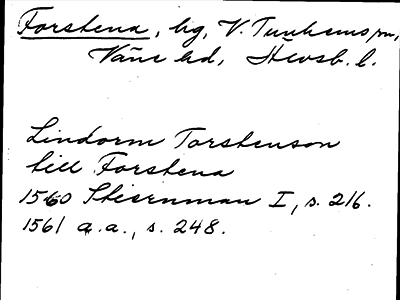 Forstena, hg, V. Tunhems sn,
Väne hd, Älvsb. l.
Lindorm Torstenson
till Forstena
1560 Stiernman I, s. 216.
1561 a.a., s. 248.